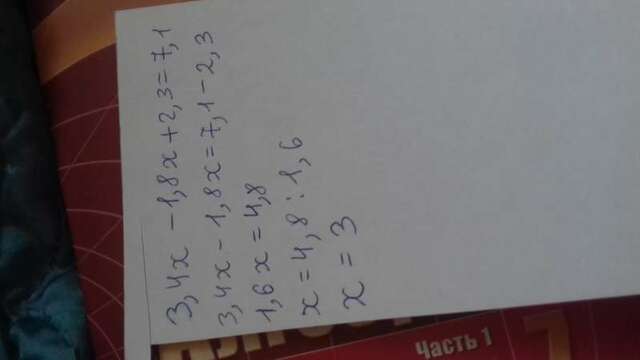 3,4x - 1,8x + 2,3 = 7,1
3,4x - 1,8x = 7,1 - 2,3
1,6x = 4,8
x = 4,8 : 1,6
x = 3
часть 1
7